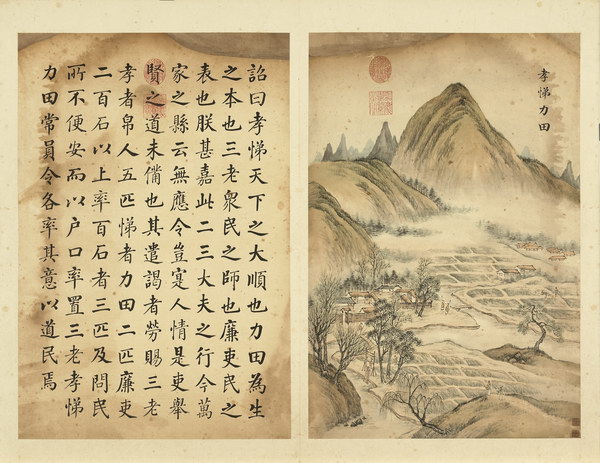 孝悌力田
詔曰孝悌天下之大順也力田為生
之本也三老衆民之師也廉吏民之
表也朕甚嘉此二三大夫之行今萬
家之縣云無應令豈寔人情是吏舉
賢之道未備也其遣謁者勞賜三老
孝者帛人五匹悌者力田二匹廉吏
二百石以上率百石者三匹及問民
所不便安而以户口率置三老孝悌
力田常員令各率其意以道民焉